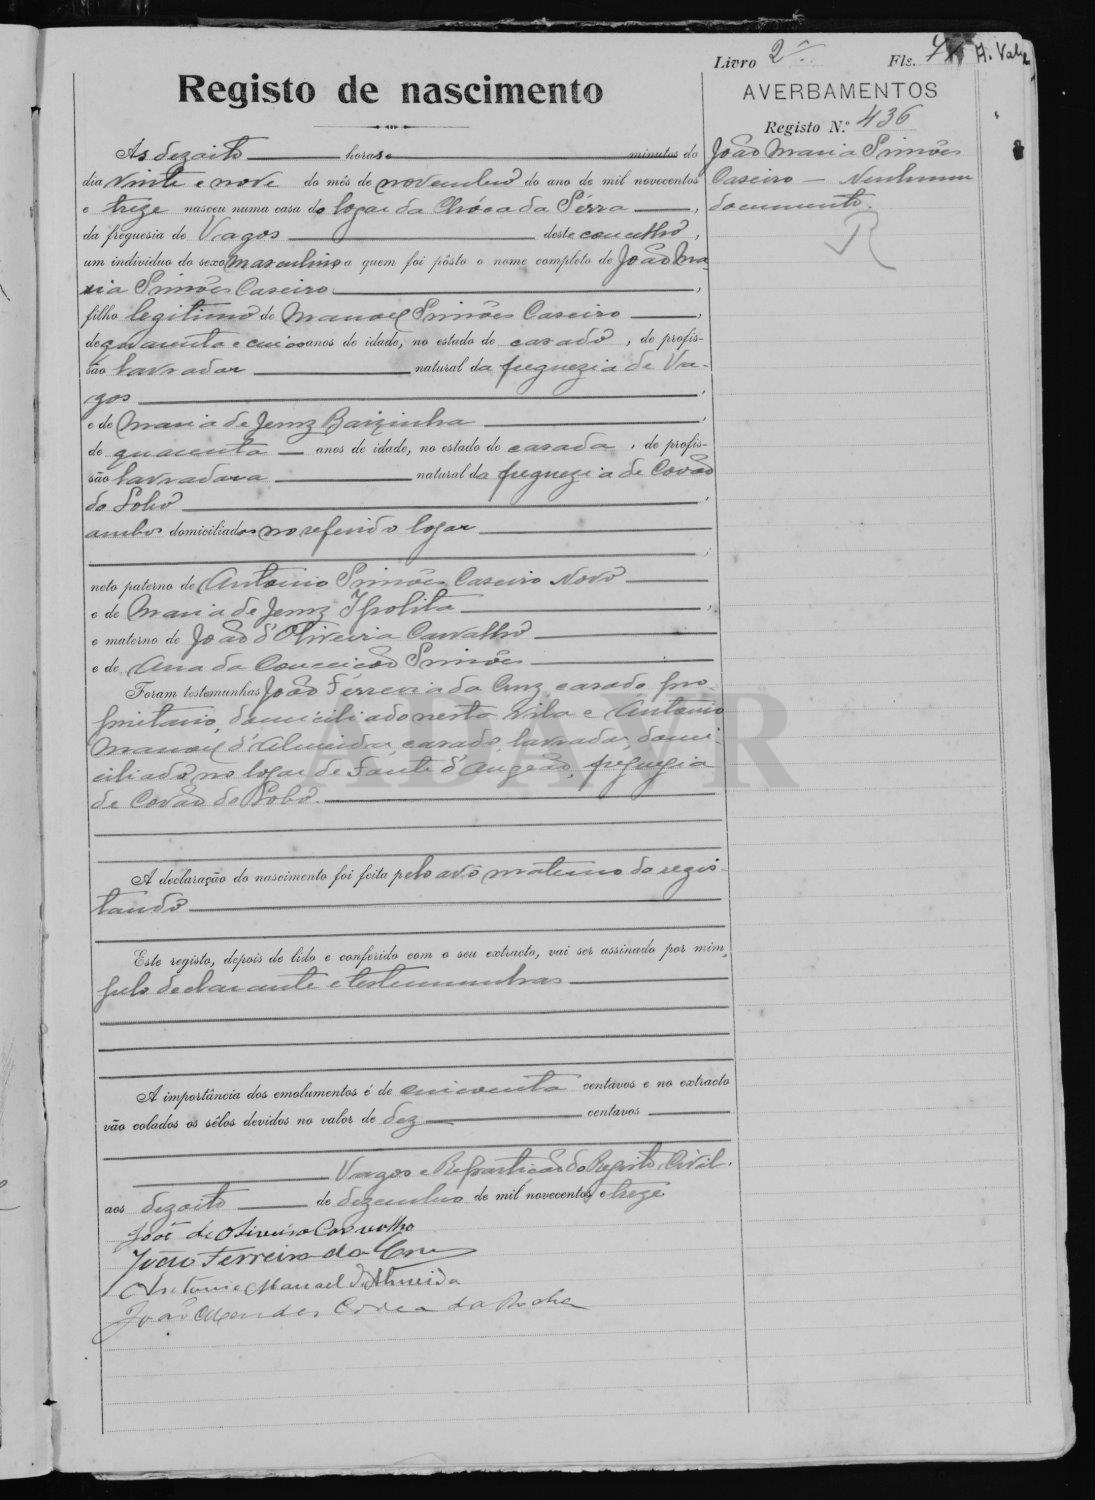 Livro 2º Fls. A. Val
Registo de nascimento
AVERBAMENTOS
Registo N.º 436
João Maria Simões
Caseiro — Nenhum
documento.
Ás dezoito horas e minutos do
dia vinte e nove do mês de novembro do ano de mil novecentos
e treze nasceu numa casa do logar da Chóca da Sérra,
da freguesia de Vagos deste concelho,
um individuo do sexo masculino a quem foi pôsto o nome completo de João Ma-
ria Simões Caseiro,
filho legitimo de Manoel Simões Caseiro,
de quarenta e cinco anos de idade, no estado de casado, de profis-
são lavrador natural da freguezia de Va-
gos,
e de Maria de Jesus Barzinha,
de quarenta anos de idade, no estado de casada, de profis-
são lavradora natural da freguezia de Covão
do Lobo,
ambos domiciliados no referido logar
neto paterno de Antonio Simões Caseiro Novo
e de Maria de Jesus Ipolita,
e materno de João d'Oliveira Carvalho
e de Ana da Conceicão Simões
Foram testemunhas João Férreira da Cruz, casado, pro-
prietario, domiciliado nesta vila e Antonio
Manoel d'Almeida, casado, lavrador, domi-
ciliado no logar de Fonte d'Angeão, freguezia
de Covão do Lobo.
ADAVR
A declaração do nascimento foi feita pelo avô materno do regis-
tando
Este registo, depois de lido e conferido com o seu extracto, vai ser assinado por mim,
pelo declarante e testemunhas
A importância dos emolumentos é de cincoenta centavos e no extracto
vão colados os sêlos devidos no valor de dez centavos
Vagos e Repartição do Registo Civil.
aos dezoito de dezembro de mil novecentos e treze
João de Oliveira Carvalho
João Ferreira da Cruz
Antonio Manuel d'Almeida
João Mendes Corrêa da Rocha